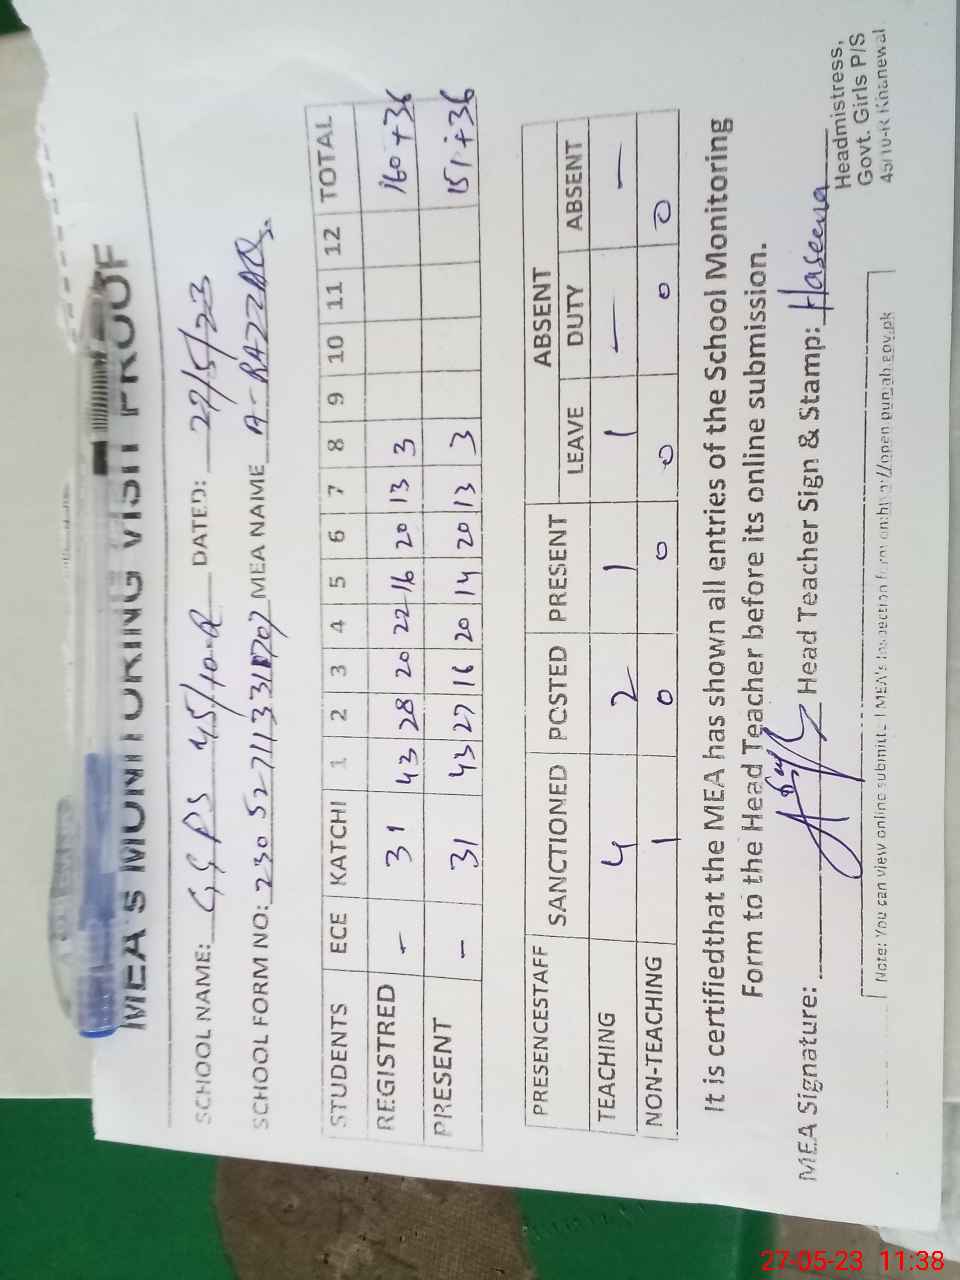 MEA'S MONITORING VISIT PROOF
SCHOOL NAME: GGPS 45/10-R DATED: 27/5/23
SCHOOL FORM NO: MEA NAME A-RAZZAQ
STUDENTS ECE KATCHI 1 2 3 4 5 6 7 8 9 10 11 12 TOTAL
REGISTRED - 31 43 28 20 22 16 20 13 3 160+36
PRESENT - 31 43 27 16 20 14 20 13 3 151+36
PRESENCESTAFF SANCTIONED POSTED PRESENT ABSENT
LEAVE DUTY ABSENT
TEACHING 4 2 1 1 — —
NON-TEACHING 1 0 0 0 0 0
It is certifiedthat the MEA has shown all entries of the School Monitoring
Form to the Head Teacher before its online submission.
MEA Signature: Head Teacher Sign & Stamp: Haseena
Headmistress,
Govt. Girls P/S
45/10-R Khanewal
Note: You can view online submitted MEA's Inspection form on:http://open.punjab.gov.pk
27-05-23 11:38